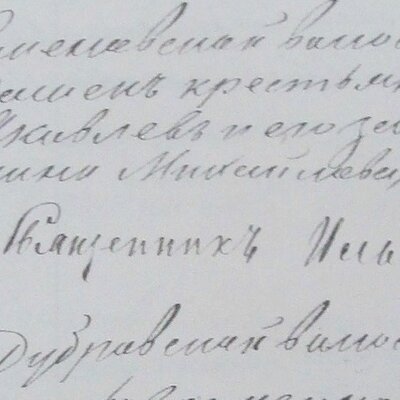 меневской волос
крестьян
Яковлевъ и его за
Михайлова
Священникъ Иль
Дубравской волос